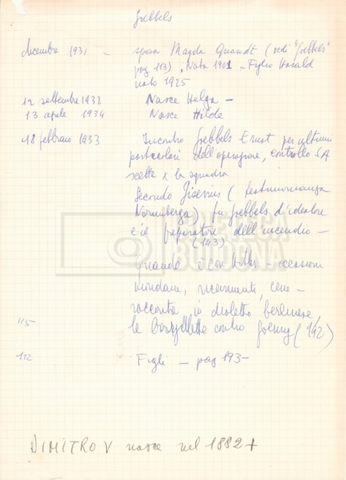 Goebbels
dicembre 1931 — sposa Magda Quandt (vedi "Goebbels"
pag 113), Nata 1901 - Figlio Harald
nato 1925
12 settembre 1932 Nasce Helga -
13 aprile 1934 Nasce Hilde
18 febbraio 1933 Incontro Goebbels Ernst per ultimi
particolari dell'operazione, controllo SA
scelta x la squadra
Secondo Gisevius (testimonianza
Norimberga) fu Goebbels l'ideatore
e il preparatore dell'incendio -
(143)
mondane, ricevimenti, cene -
115 racconta, in dialetto berlinese,
le barzellette contro Goering (142)
112 Figli - pag 193 -
DIMITROV nasce nel 1882 +
CINETECA
BOLOGNA